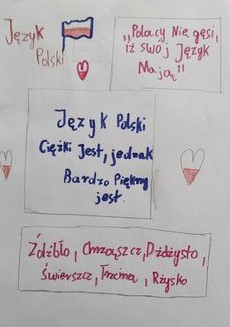 Język
Polski
„Polacy Nie gęsi,
iż swój Język
Mają"
Język Polski
Ciężki Jest, jednak
Bardzo Piękny
jest.
Źdźbło, Chrząszcz, Dżdżysto,
Świerszcz, Trzcina, Rżysko